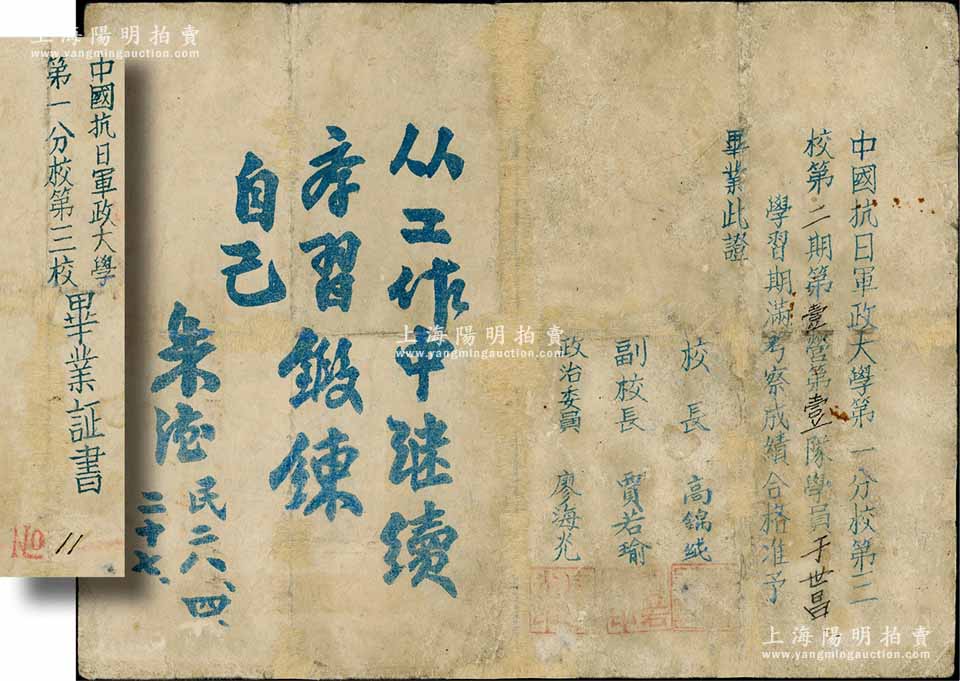 上海陽明拍賣
www.yangmingauction.com
中國抗日軍政大學
第一分校第三校
畢業証書
No 11
中國抗日軍政大學第一分校第三
校第二期第壹營第壹隊學員于世昌
學習期滿考察成績合格准予
畢業此證
校長 高錦純
副校長 賈若瑜
政治委員 廖海光
从工作中继續
學習鍛鍊
自己
朱德
民二八、四、
二十七、
上海陽明拍賣
www.yangmingauction.com
上海陽明拍賣
www.yangmingauction.com